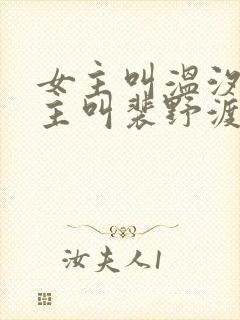 女主叫温汐
主叫裴野渡
汝夫人1